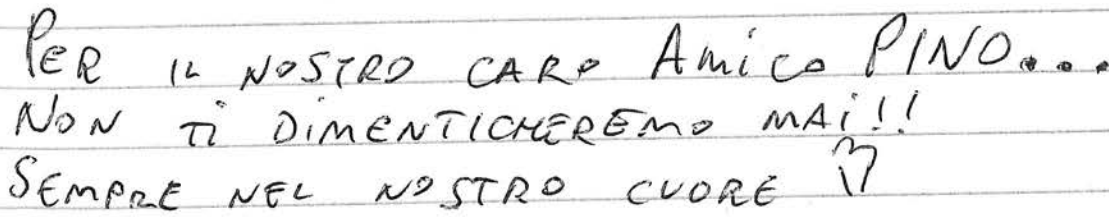 PER IL NOSTRO CARO AMiCO PINO...
NON Ti DIMENTICHEREMO MAi!!
SEMPRE NEL NOSTRO CUORE ♡